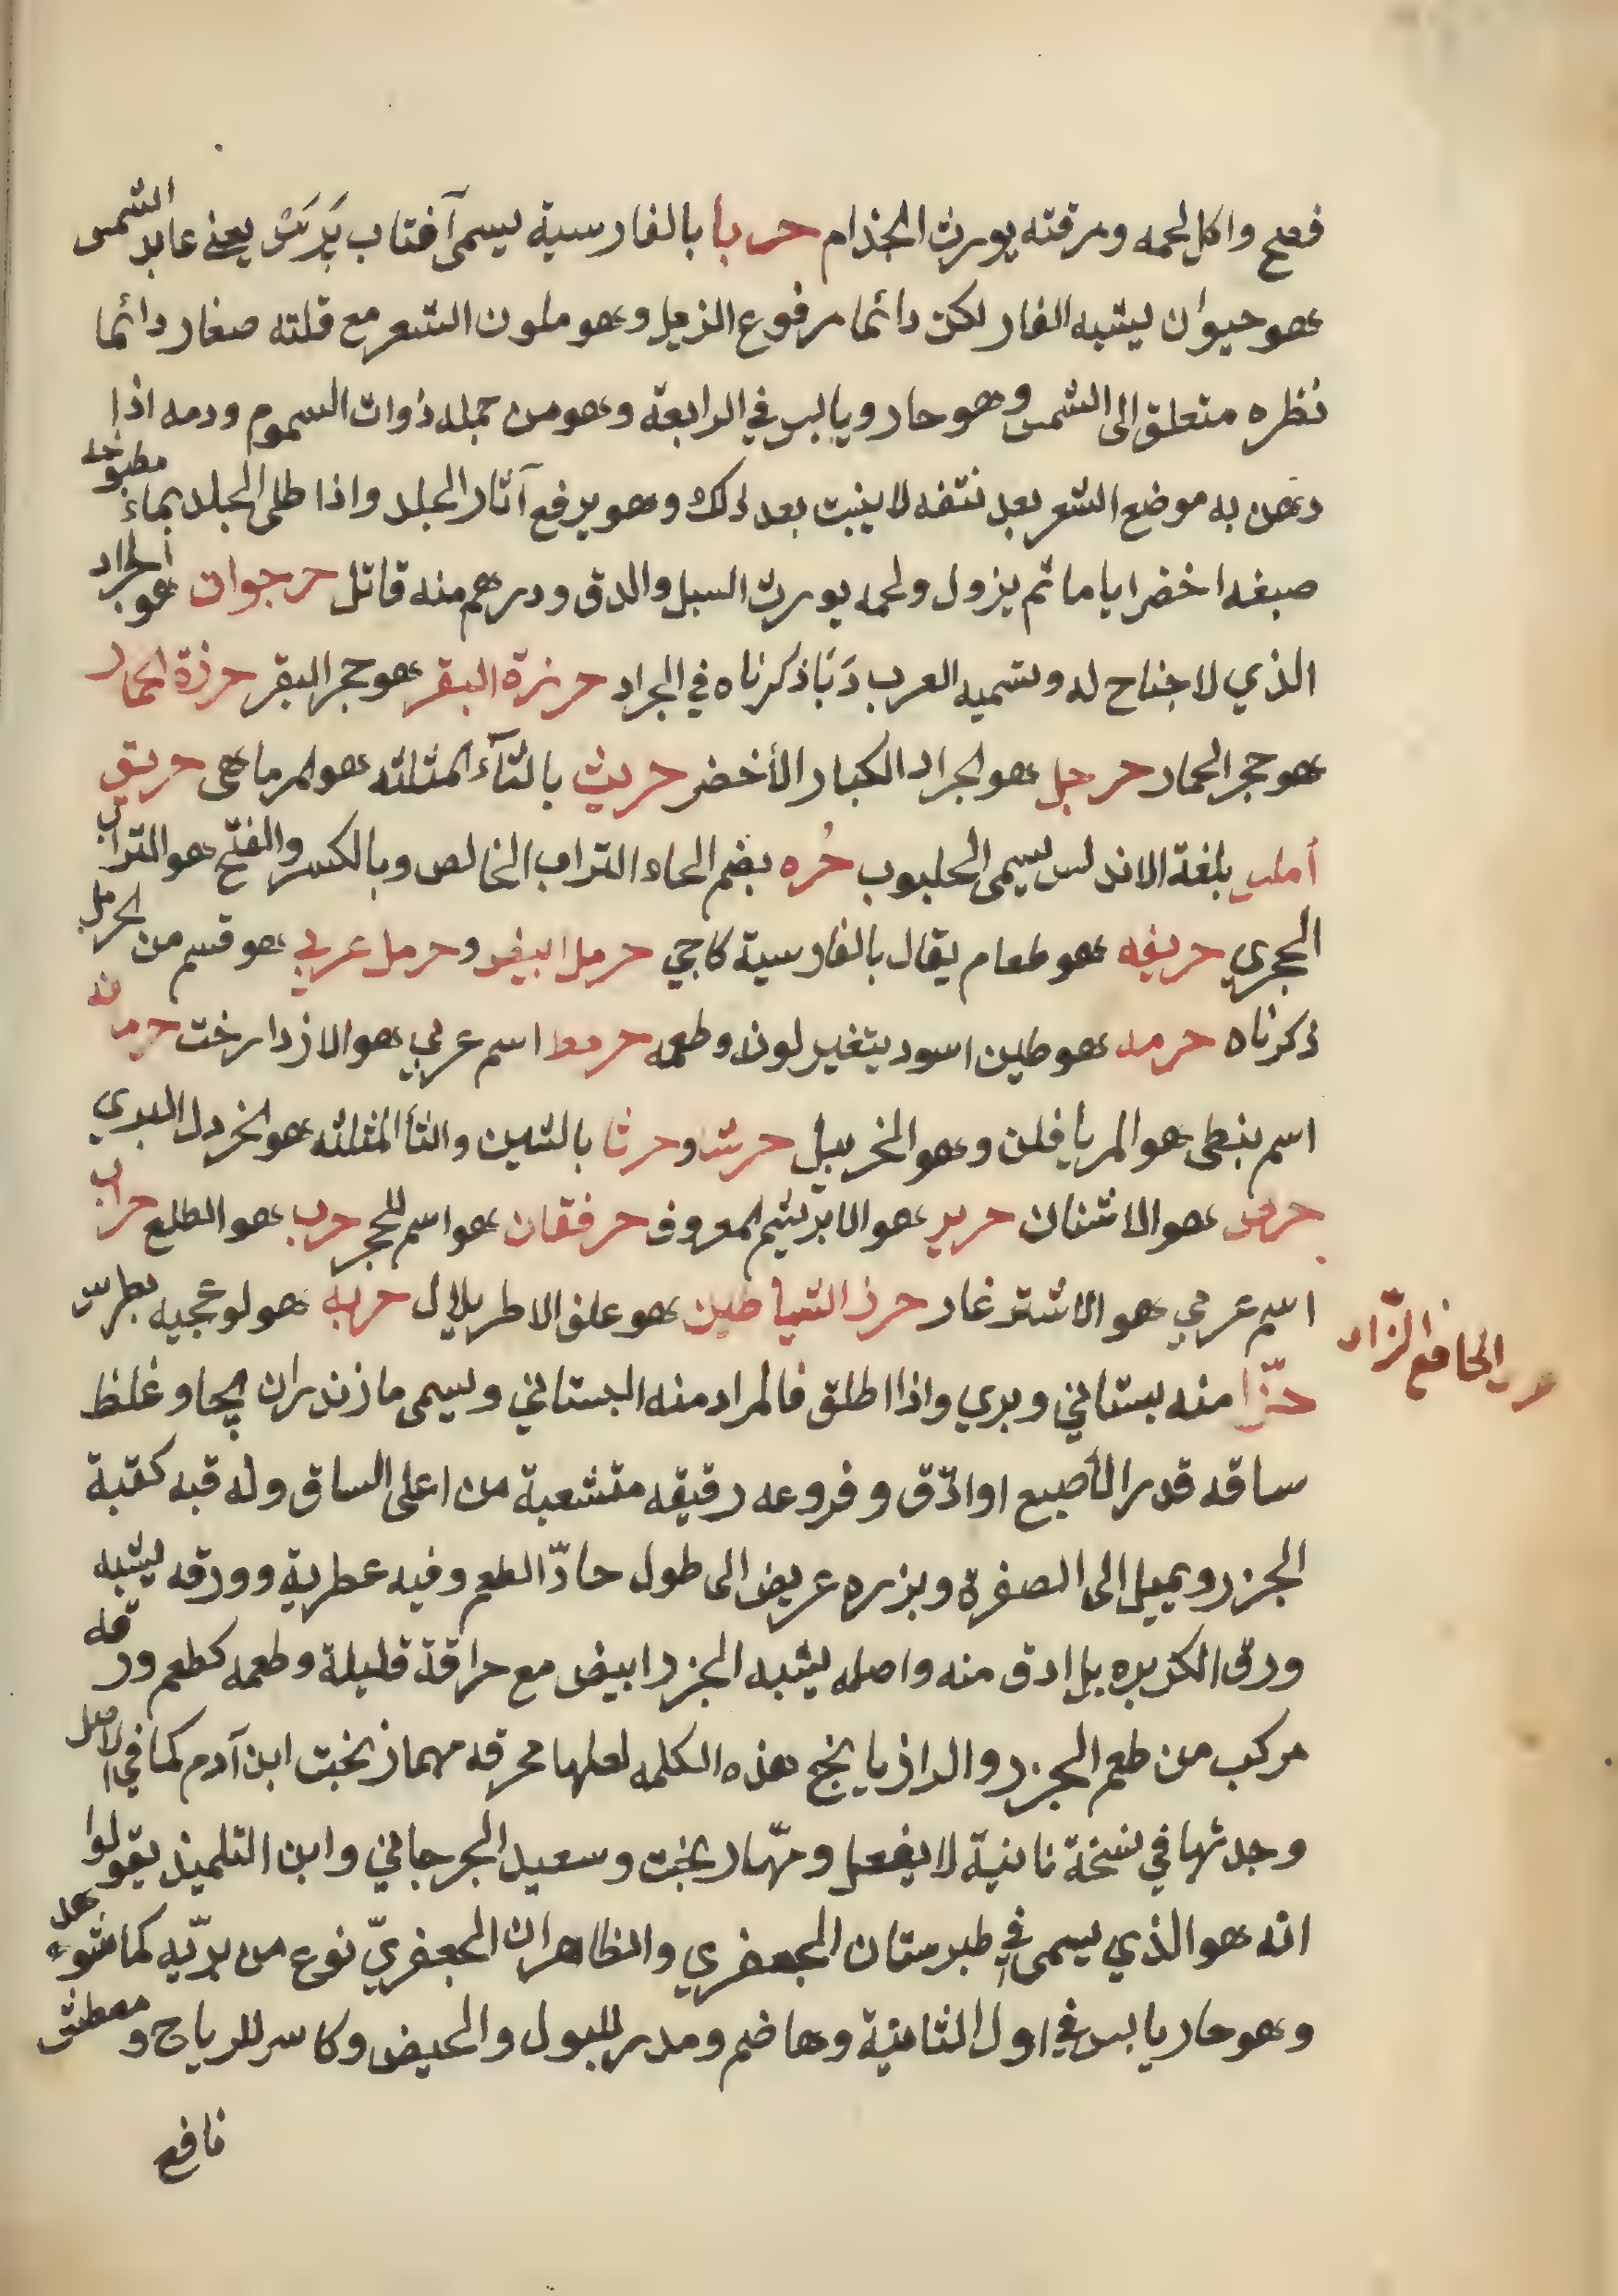 فصح واكل لحمه ومرقته يورث الجذام حربا بالفارسية يسمى آفتاب پَرَسَت يعني عابد الشمس
هو حيوان يشبه الفار لكن دائما مرفوع الذيل وهو ملون الشعر مع قلته صغار دائما
نظره متعلق الى الشمس وهو حار ويابس في الرابعة وهو من جمله ذوات السموم ودمه اذا
دهن به موضع الشعر بعد نتفه لا ينبت بعد ذلك وهو يرفع آثار الجلد واذا طلى الجلد بماء مطبوخه
صبغه اخضر اياما ثم يزول ولحمه يورث السل والدق ودرهم منه قاتل حرجوان هو الجراد
الذي لا جناح له وتسميه العرب دَبَا ذكرناه في الجراد حرزة البقر هو حجر البقر حرزة الحمار
هو حجر الحمار حرجل هو الجراد الكبار الأخضر حريث بالثآء المثلثه هو المرماهى حريق
أملس بلغة الاندلس يسمى الحلبوب حُره بضم الحاء التراب الخالص وبالكسر والفتح هو التراب
الحجري حريفه هو طعام يقال بالفارسية كاجي حرمل ابيض وحرمل عربي هو قسم من الحرمل
ذكرناه حرمد هو طين اسود يتغير لونه وطعمه حرمط اسم عربي هو الازدارخت حرمانه
اسم بنطى هو المريافلن وهو الخرسيل حرشا وحرثا بالشين والثأ المثلثه هو الخردل البري
حرض هو الاشنان حرير هو الابريشم المعروف حرفقان هو اسم للحجر حرب هو الطلع حراب
اسم عربي هو الاشترغار حرز الشياطين هو علف الاطريلال حربه هو لوعجيه بطرس
حرف الحا مع الزّاء
حزّا منه بستاني وبري واذا اطلق فالمراد منه البستاني ويسمى مازندران چچا وغلظ
ساقه قدر الأصبع او ادّق وفروعه رقيقه متشعبة من اعلى الساق وله قبه كقبة
الجزر ويميل الى الصفرة وبزره عريض الى طول حادّ الطعم وفيه عطرية وورقه يشبه
ورق الكزبره بل ادق منه واصله يشبه الجزر ابيض مع حراقة قليلة وطعمه كطعم ورقه
مركب من طعم الجزر والرازيانج هذه الكلمه لعلها محرقه مهمازنجت ابن آدم كما في الاصل
وجدتها في نسخة ثانية لا يفعل ومهّاربخت وسعيد الجرجاني وابن التلميذ يقولوا
انه هو الذي يسمى في طبرستان الجعفري والظاهر ان الجعفريّ نوع من بريّه كما شوهد
وهو حار يابس في اول الثانية وهاضم ومدر للبول والحيض وكاسر للرياح ومعطش
نافع